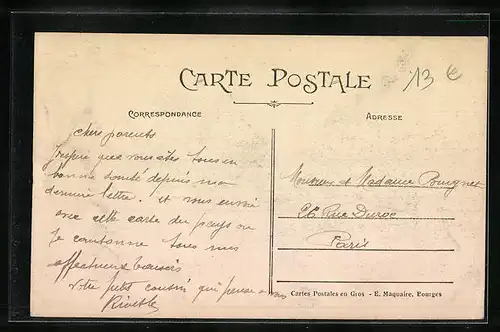 13 €
CARTE POSTALE
CORRESPONDANCE
ADRESSE
chers parents
J'espère que vous êtes tous en
bonne santé depuis ma
dernière lettre. et vous envoie
avec cette carte du pays ou
Je cantonne tous mes
affectueux baisers
votre petit cousin qui pense a vous
Monsieur et Madame
26 Rue Duroc
Paris
Cartes Postales en Gros - E. Maquaire, Bourges